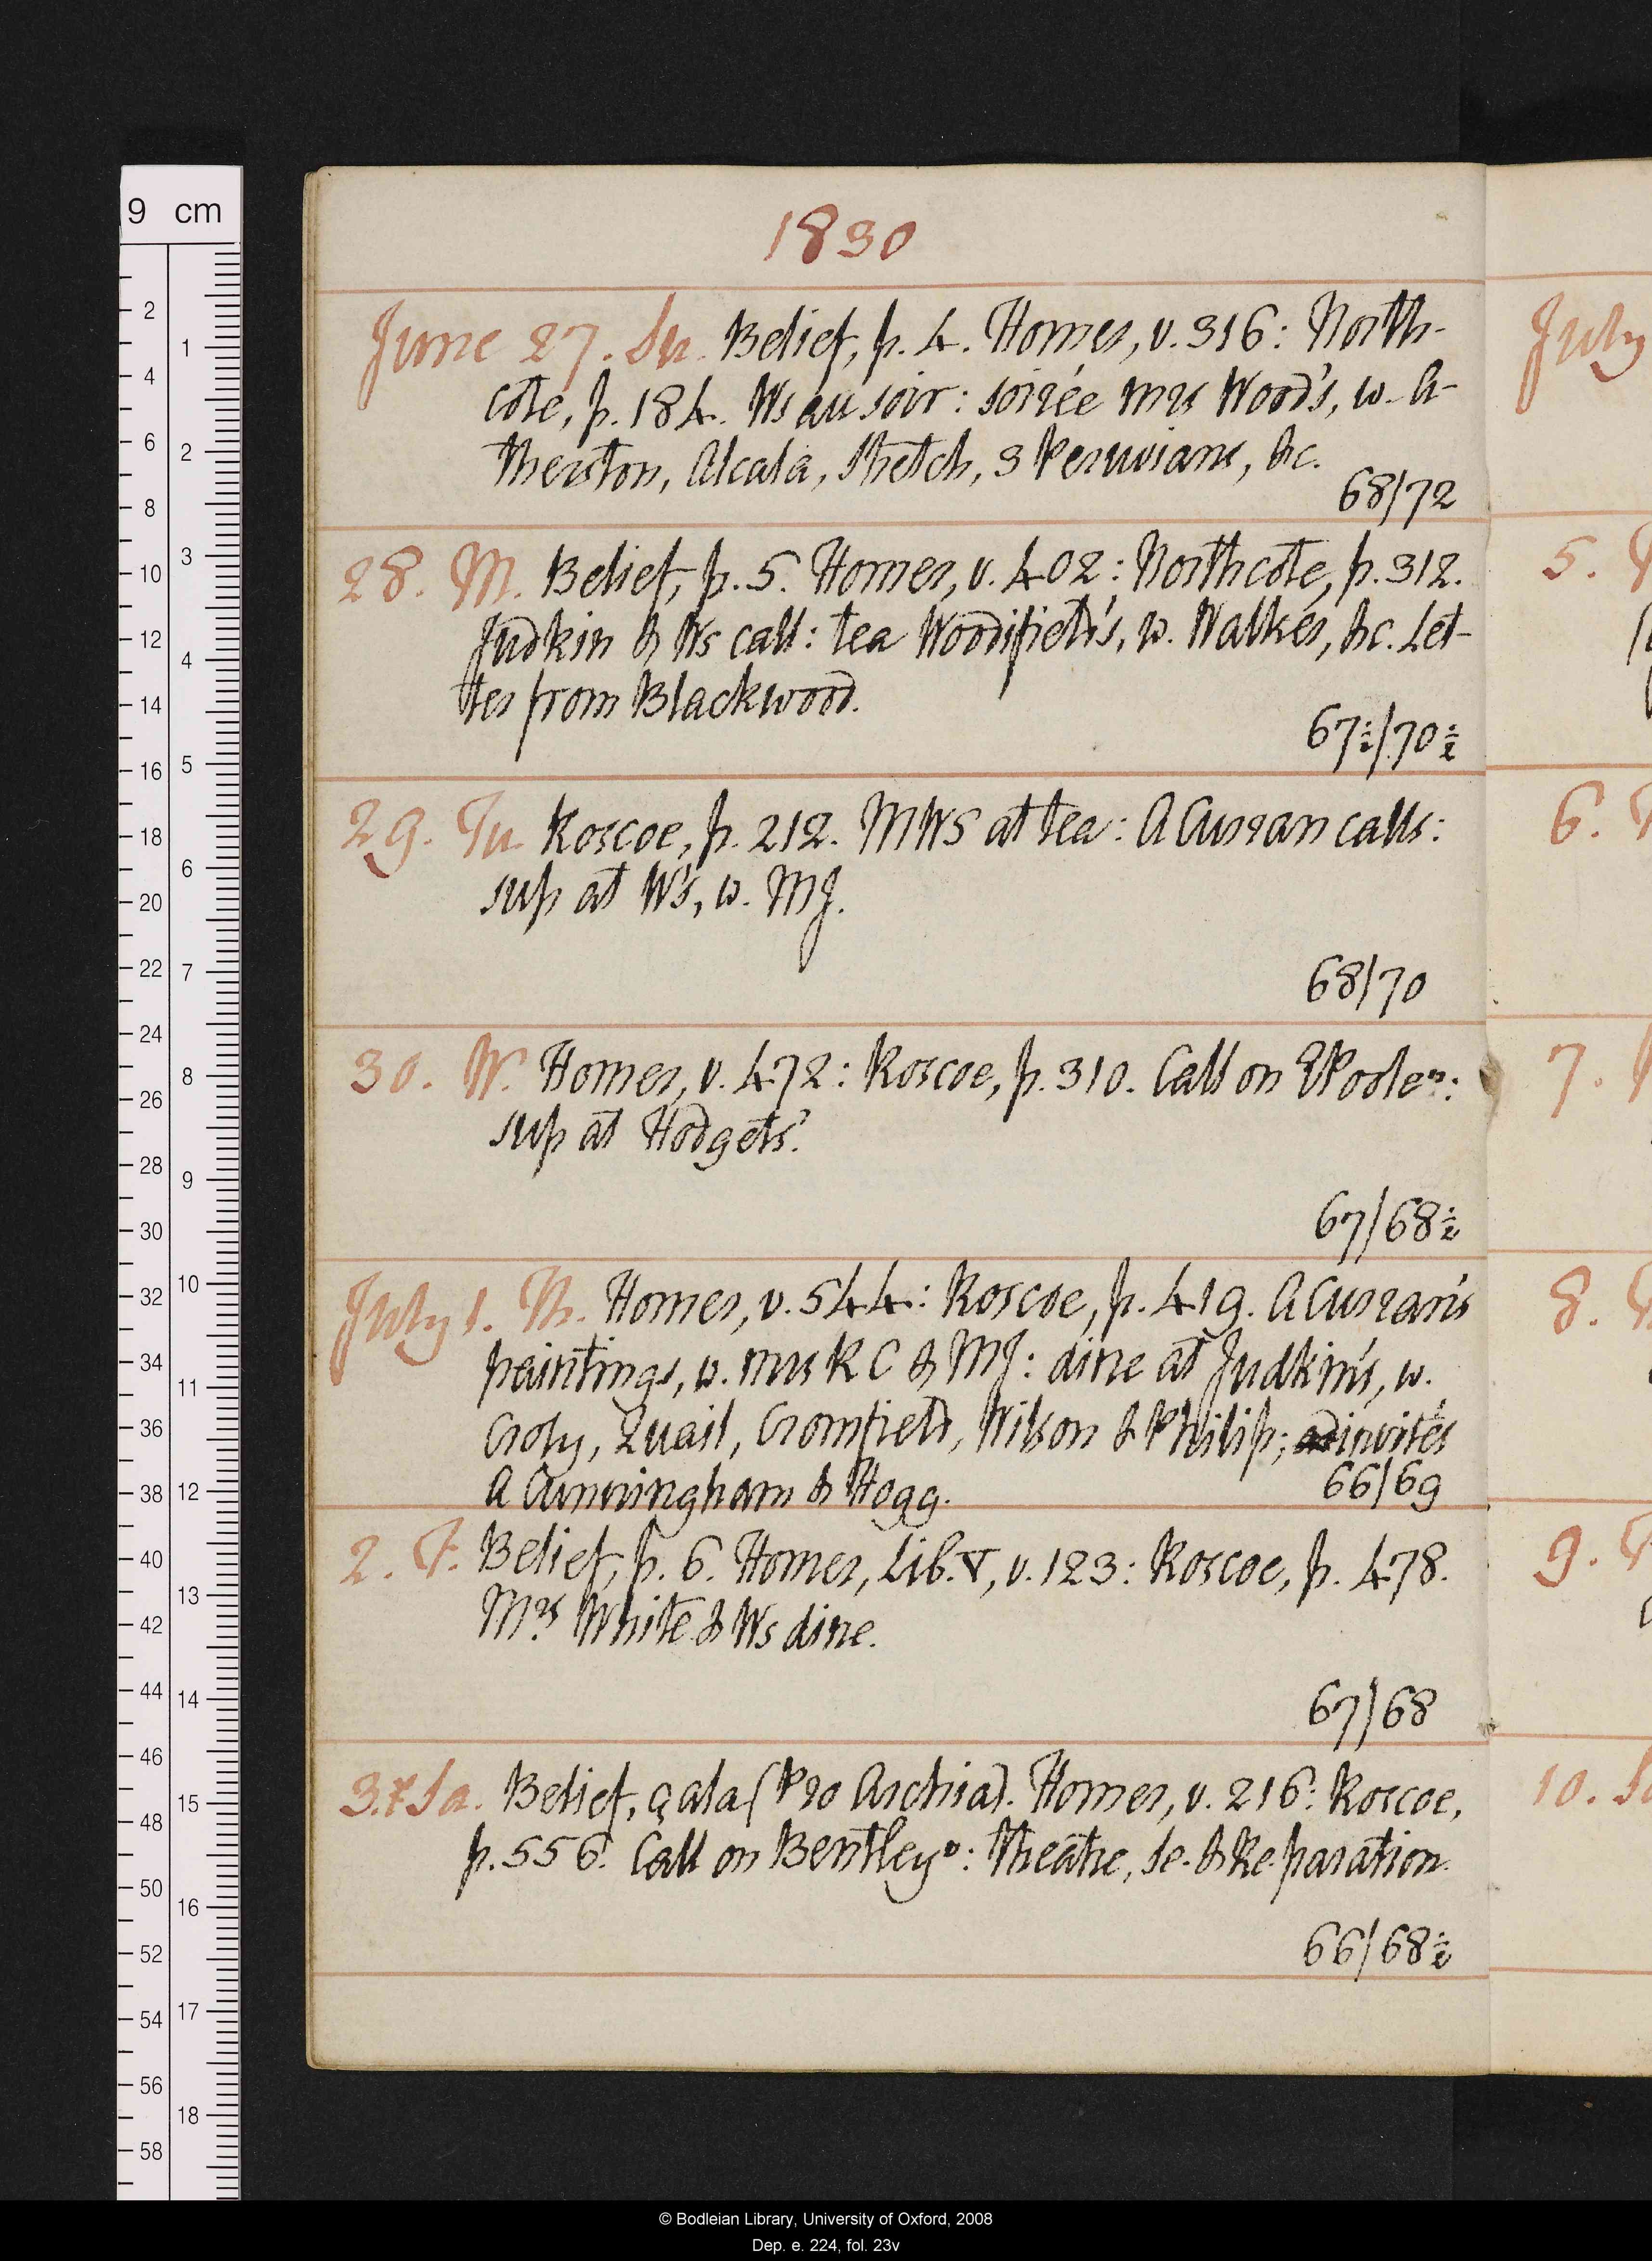 1830
June 27. Su. Belief, p. 4. Homer, v. 316: North-
cote, p. 184. Ws au soir: soirée mrs Wood's, w. A-
therston, Alcala, Sketch, 3 Peruvians, &c.
68/72
28. M. Belief, p. 5. Homer, v. 402: Northcote, p. 312.
Judkin & Ws call: tea Woodifield's, w. Walker, &c. Let-
ter from Blackwood.
67½/70½
29. Tu. Roscoe, p. 212. MWS at tea: A Curran calls:
sup at W's, w. MJ.
68/70
30. W. Homer, v. 472: Roscoe, p. 310. Call on EPoole ⁿ:
sup at Hodgets'.
67/68½
July 1. Th. Homer, v. 544: Roscoe, p. 419. A Curran's
paintings, w. mrs R C & MJ: dine at Judkin's, w.
Croly, Quail, Cromfield, Wilson & Philip; invités
A Cunningham & Hogg.
66/69
2. F. Belief, p. 6. Homer, Lib. V, v. 123: Roscoe, p. 478.
Mrs White & Ws dine.
67/68
3. Sa. Belief, çala (Pro Archia). Homer, v. 216: Roscoe,
p. 556. Call on Bentley ⁿ: Theatre, Se. & Re. paration.
66/68½
July
5.
6.
7.
8.
9.
10. Sa
9 cm
2
4
6
8
10
12
14
16
18
20
22
24
26
28
30
32
34
36
38
40
42
44
46
48
50
52
54
56
58
1
2
3
4
5
6
7
8
9
10
11
12
13
14
15
16
17
18
© Bodleian Library, University of Oxford, 2008
Dep. e. 224, fol. 23v